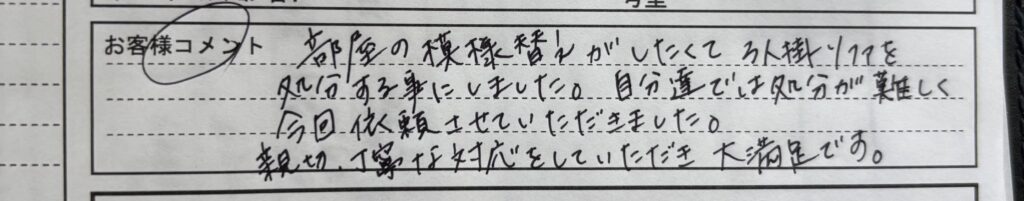 お客様コメント 部屋の模様替えがしたくて3人掛ソファを
処分する事にしました。自分達では処分が難しく
今回依頼させていただきました。
親切、丁寧な対応をしていただき大満足です。